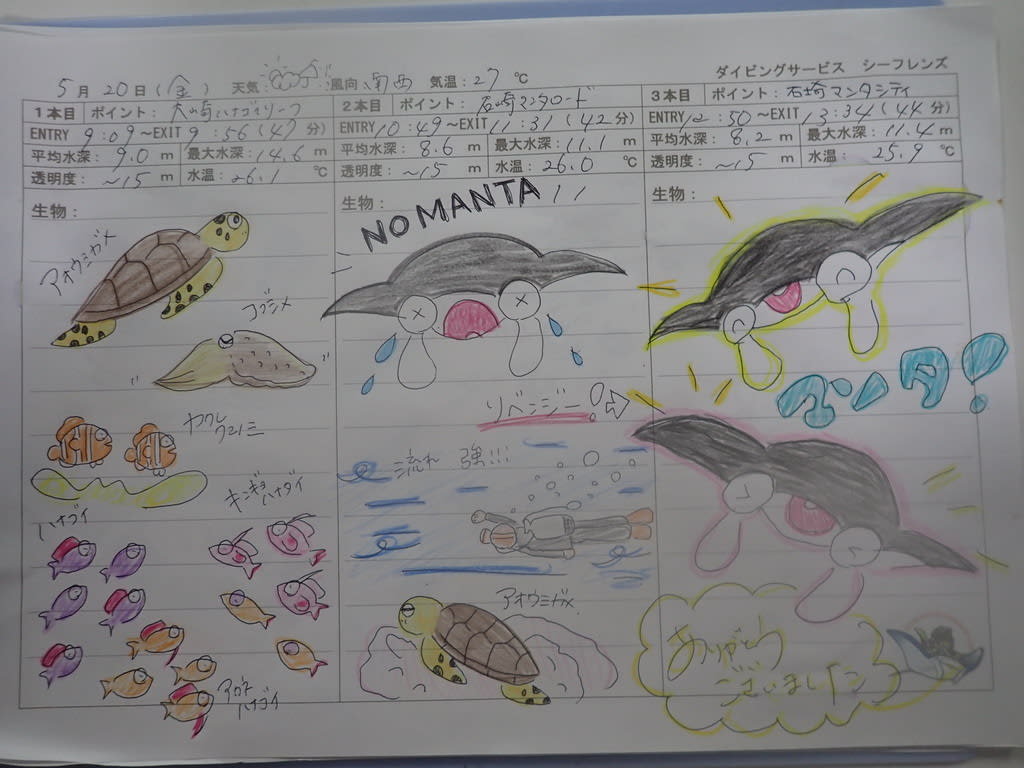 ダイビングサービス シーフレンズ
5月20日(金) 天気: 風向:南西 気温:27℃
1本目 ポイント:大崎ハナゴイリーフ
ENTRY 9:09~EXIT 9:56(47分)
平均水深:9.0m 最大水深:14.6m
透明度:~15m 水温:26.1℃
生物:
アオウミガメ
コブシメ
カクレクマノミ
キンギョハナダイ
ハナゴイ
アカネハナゴイ
2本目 ポイント:石崎マンタロード
ENTRY 10:49~EXIT 11:31(42分)
平均水深:8.6m 最大水深:11.1m
透明度:~15m 水温:26.0℃
生物:
NO MANTA!!
リベンジー!⇨
流れ 強!!!
アオウミガメ
3本目 ポイント:石崎マンタシティ
ENTRY 12:50~EXIT 13:34(44分)
平均水深:8.2m 最大水深:11.4m
透明度:~15m 水温:25.9℃
生物:
マンタ!
ありがとう
ございました